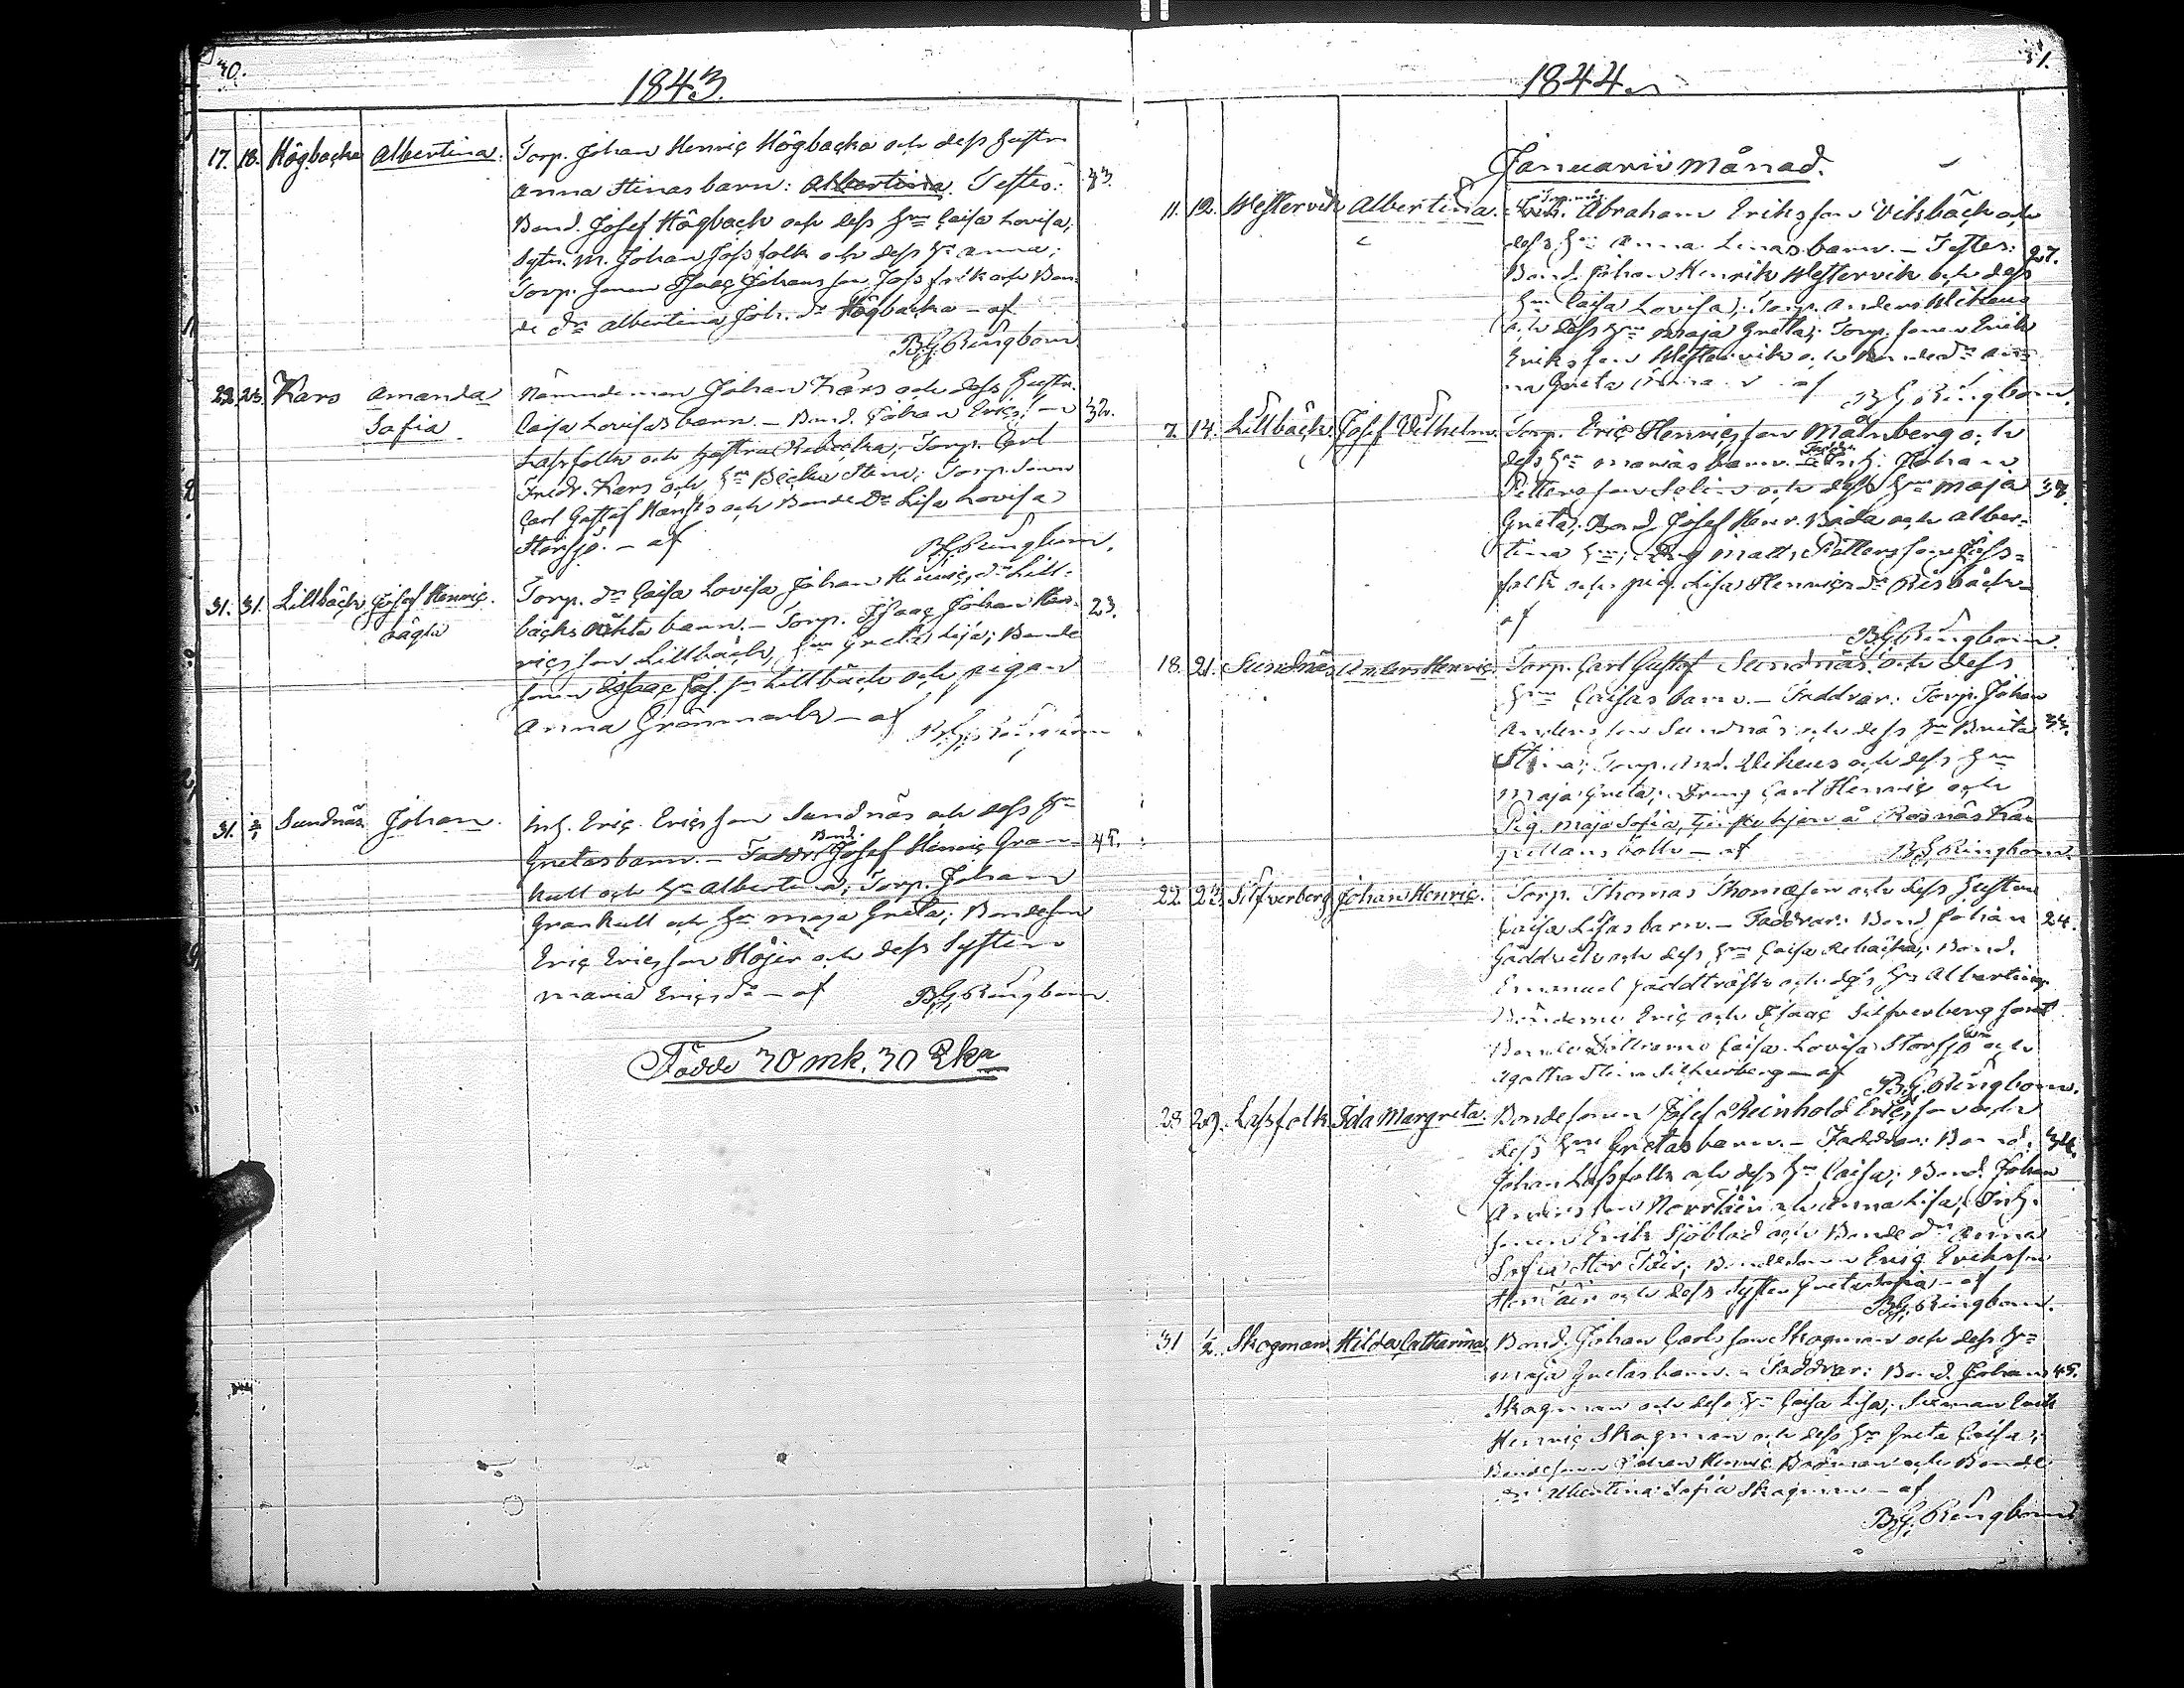 30.
1843.
17. 18. Högbacka Albertina. Torp. Johan Henric Högbacka och dess hustru
Anna Stinas barn: Albertina. Testes: 43.
Bond. Josef Högback och dess Hu Caisa Lovisa;
Sytn. m. Johan Jossfolk och dess Hu Anna;
Torp. sonen Isaac Johansson Jossfolk och Bon-
de dr Albertina Joh. dr Högbacka – af
B.G. Ringbom
22. 23. Kars Amanda Nämndeman Johan Kars och dess hustru
Sofia. Caisa Lovisas barn. – Bond. Johan Erics- 32.
Lassfolk och hustru Rebecka; Torp. Carl
Fredr. Kars och Hu Becka Stina; Torp. sonen
Carl Gustaf och Bonde Dr Lisa Lovisa
Storsjö. – af B.G. Ringbom.
31. 31. Lillbäck Josef Henric. Torp. dr Caisa Lovisa Johan Henrics dr Lill-
oägta bäcks oäkta barn. – Torp. Isaac Johan Hen- 23.
ricsson Lillbäck, Hu Greta Lisa; Bonde
sonen Isaac Joh. sn Lillbäck och pigan
Anna Grönmark – af B.G. Ringbom
31. 2/1 Sundnäs Johan. Inh. Eric Ericsson Sundnäs och dess Hu
Gretas barn. – Faddr. Bond. Josef Henric Gran- 45.
kull och Hu Albertina; Torp. Johan
Grankull och Hu Maja Greta; Bondeson
Eric Ericsson Höjer och dess Syster
Maria Erics dr – af B.G. Ringbom.
Födde 30 mk. 30 Qkn
31.
1844.
Januarii Månad.
11. 12. Westervik Albertina. Abraham Eriksson Viksbäck och
dess Hu Anna Lenas barn. – Testes: 27.
Bond. Johan Henrik Westervik och dess
Hu Caisa Lovisa; Torp. Anders
och dess Hu Maja Greta; Torp. sonen Erik
Eriksson Westervik och Bonde dr An-
na Greta af B.G. Ringbom.
7. 14. Lillbäck Josef Vilhelm. Torp. Eric Henricsson Målnberg och
dess Hu Marias barn. – Inh. Johan
Pettersson Selin och dess Hu Maja 37.
Greta; Bond. Josef Henr. och Alber-
tina Hu; Dreng Matts Pettersson Joss-
folk och pig. Lisa Henrics dr Risbäck
af
B.G. Ringbom.
18. 21. Sundnäs Anders Henric. Torp. Carl Gustaf Sundnäs och dess
Hu Caisas barn. – Faddrar: Torp. Johan
Andersson Sundnäs och dess Hu Brita 33.
Stina; Torp. And. och dess Hu
Maja Greta; Dreng Carl Henric och
Pig. Maja Sofia, på Rosnäs
– af B.G. Ringbom.
22. 23. Silfverberg Johan Henric. Torp. Thomas Thomasson och dess hustru
Caisa Lisas barn. – Faddrar: Bond. Johan 24.
och dess Hu Caisa Rebecka; Bond.
Emanuel Gäddträsk och dess Hu Albertina
Bönderne Eric och Isaac Silfverberg samt
Caisa Lovisa Storsjö och
Agatha Stina Silfverberg – af B.G. Ringbom.
28 29. Lassfolk Ida Margreta. Bondesonen Josef Reinhold Ericsson och
dess Hu Gretas barn. – Faddrar: Bond. 34.
Johan Lassfolk och dess Hu Caisa; Bond. Johan
Andersson och Anna Lisa; Inh.
sonen Erik Sjöblad och Bonde dr Anna
Sofia; Bondesonen Eric Eriksson
och dess Syster Greta Sofia – af
B.G. Ringbom.
31 1/2. Skogman Hilda Catharina Bond. Johan Carlsson Skogman och dess Hu
Maja Gretas barn. – Faddrar: Bond. Johan 45.
Skogman och dess Hu Caisa Lisa;
Henric Skogman och dess Hu Greta Caisa;
Bondesonen Johan Henric och Bonde
dr Albertina Sofia Skogman – af
B.G. Ringbom